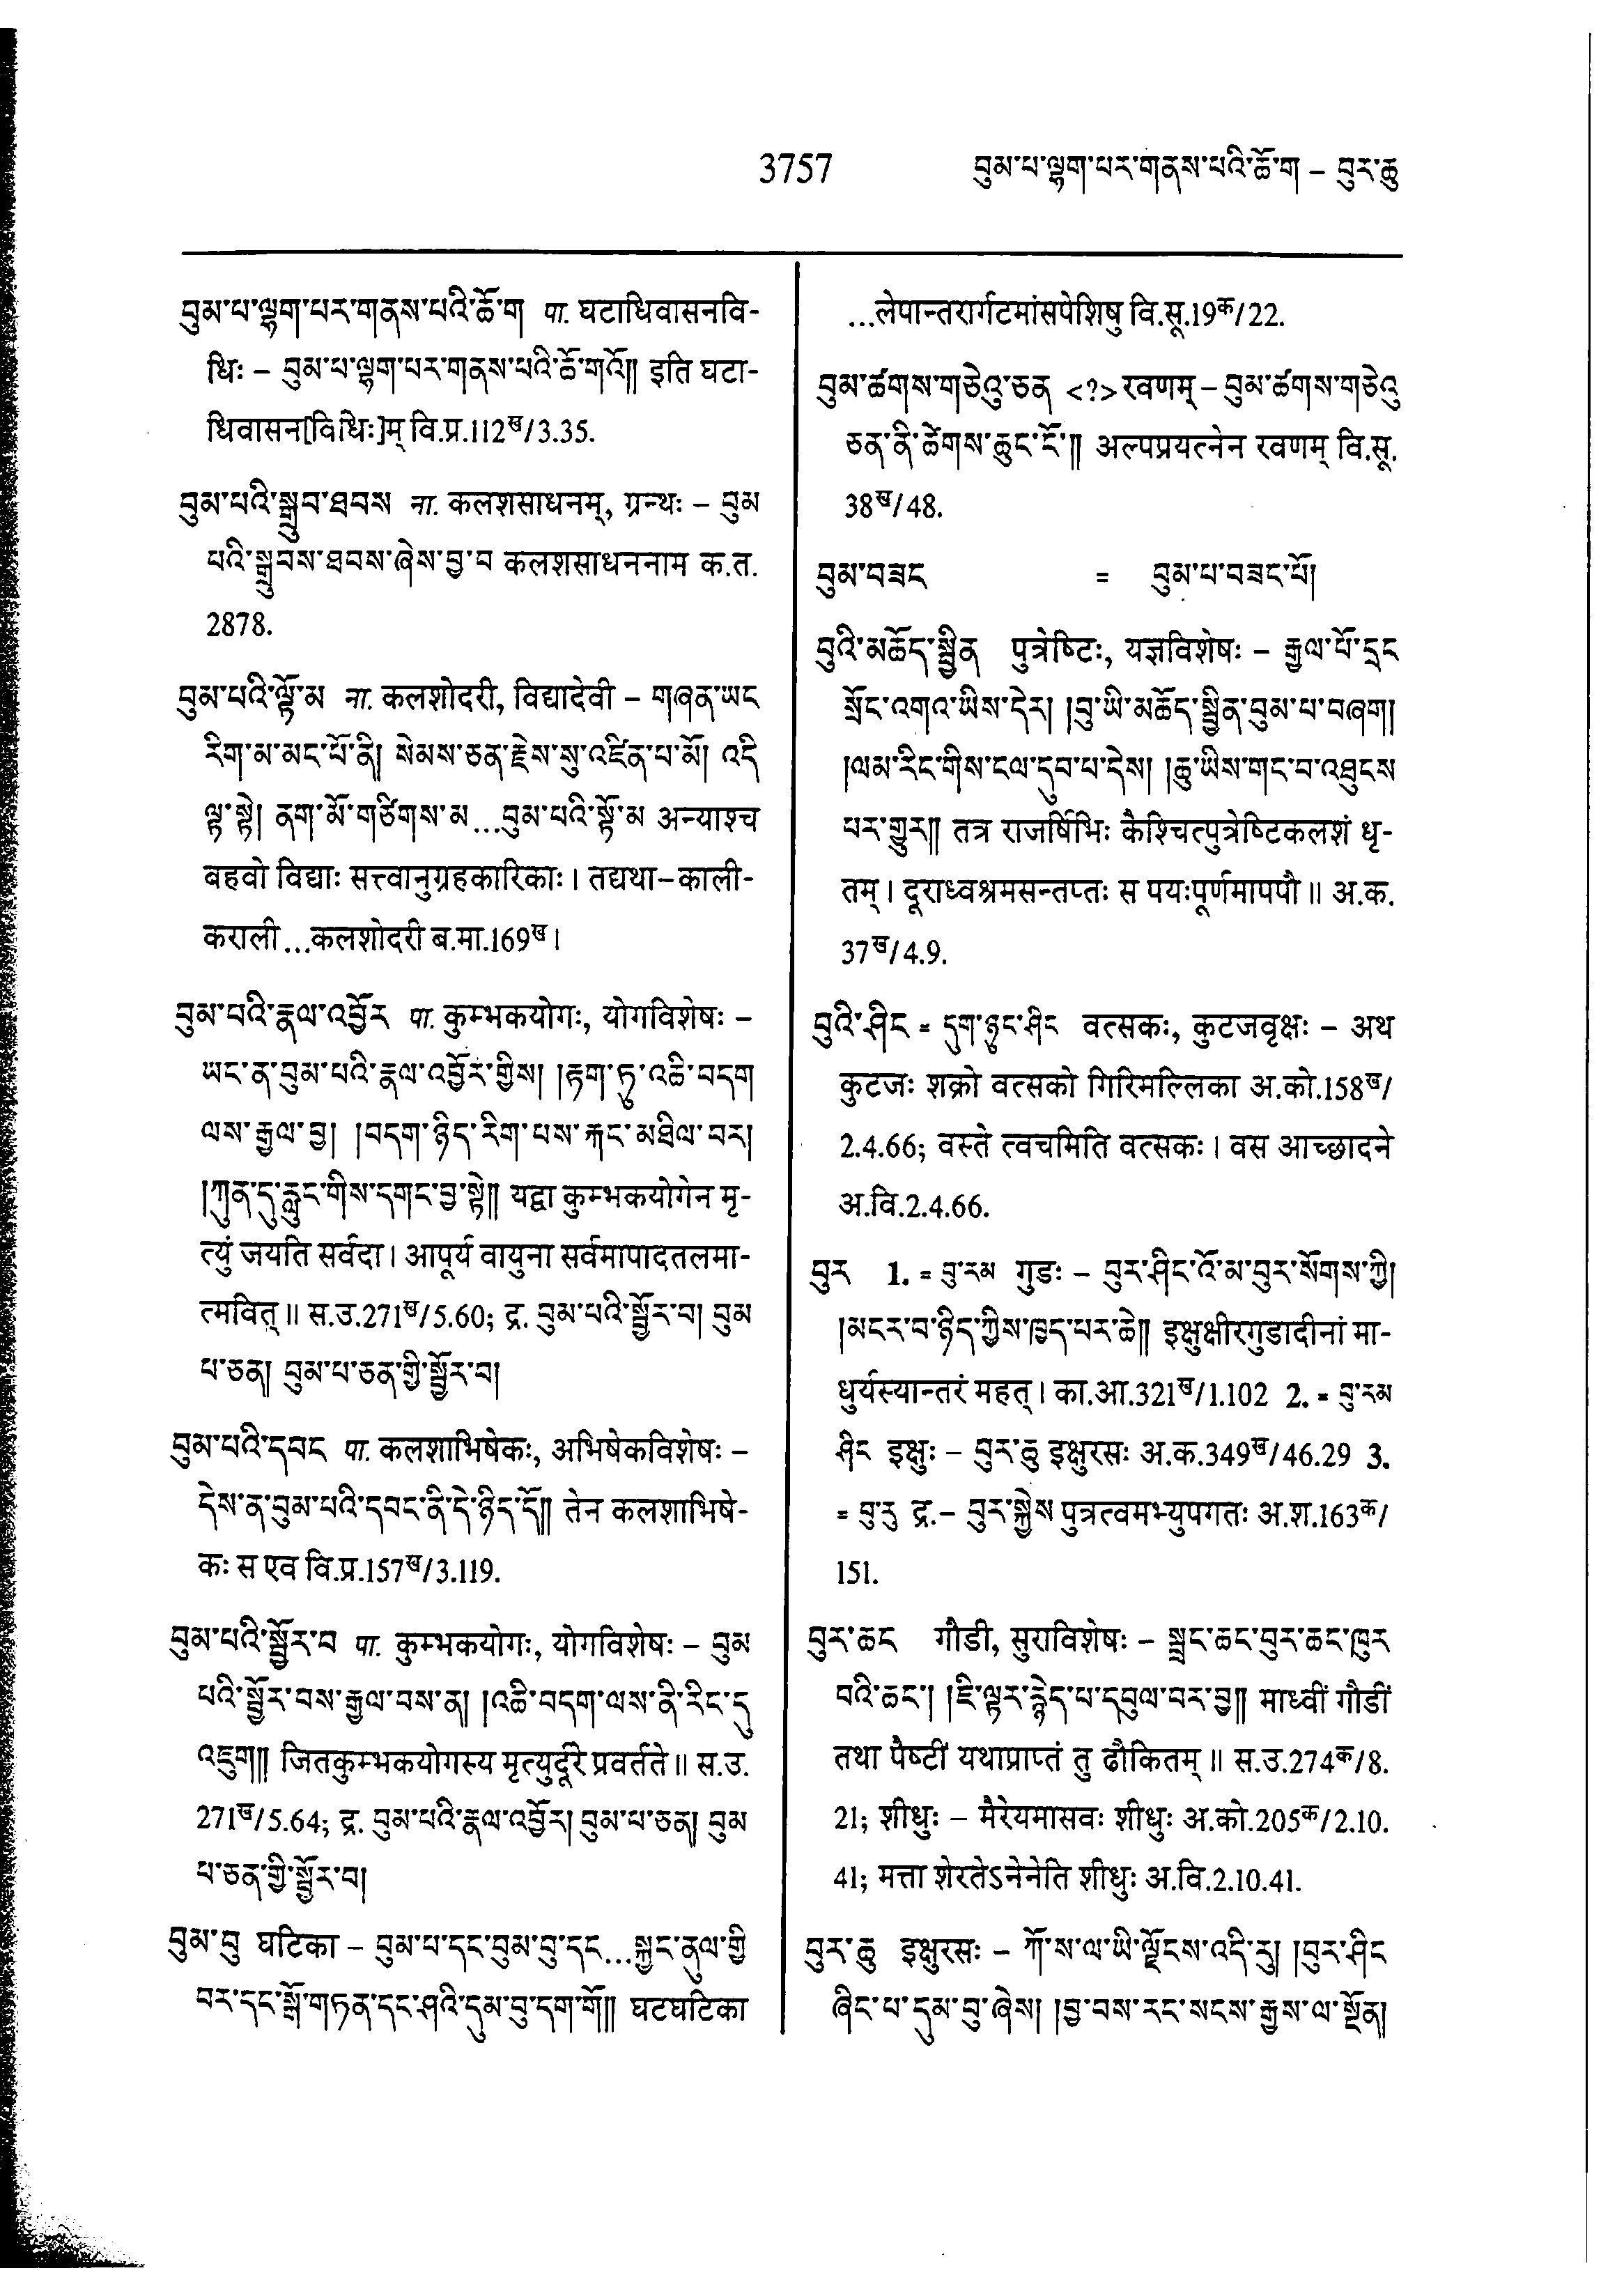 3757
བུམ་པ་ལྷག་པར་གནས་པའི་ཆོ་ག – བུར་ཆུ
བུམ་པ་ལྷག་པར་གནས་པའི་ཆོ་ག पा. घटाधिवासनवि-
धिः – བུམ་པ་ལྷག་པར་གནས་པའི་ཆོ་གའོ།། इति घटा-
धिवासन[विधिः]म् वि.प्र.112ख/3.35.
བུམ་པའི་སྒྲུབ་ཐབས ना. कलशसाधनम्, ग्रन्थः – བུམ
པའི་སྒྲུབས་ཐབས་ཞེས་བྱ་བ कलशसाधननाम क.त.
2878.
བུམ་པའི་ལྟོ་མ ना. कलशोदरी, विद्यादेवी – གཞན་ཡང
རིག་མ་མང་པོ་ནི། སེམས་ཅན་རྗེས་སུ་འཛིན་པ་མོ། འདི
ལྟ་སྟེ། ནག་མོ་གཙིགས་མ...བུམ་པའི་ལྟོ་མ अन्याश्च
बहवो विद्याः सत्त्वानुग्रहकारिकाः। तद्यथा–काली-
कराली...कलशोदरी ब.मा.169ख।
བུམ་པའི་རྣལ་འབྱོར पा. कुम्भकयोगः, योगविशेषः –
ཡང་ན་བུམ་པའི་རྣལ་འབྱོར་གྱིས། །རྟག་ཏུ་འཆི་བདག
ལས་རྒྱལ་བྱ། །བདག་ཉིད་རིག་པས་རྐང་མཐིལ་བར།
།ཀུན་དུ་རླུང་གིས་དགང་བྱ་སྟེ།། यद्वा कुम्भकयोगेन मृ-
त्युं जयति सर्वदा। आपूर्य वायुना सर्वमापादतलमा-
त्मवित्॥ स.उ.271ख/5.60; द्र. བུམ་པའི་སྦྱོར་བ། བུམ
པ་ཅན། བུམ་པ་ཅན་གྱི་སྦྱོར་བ།
བུམ་པའི་དབང पा. कलशाभिषेकः, अभिषेकविशेषः –
དེས་ན་བུམ་པའི་དབང་ནི་དེ་ཉིད་དོ།། तेन कलशाभिषे-
कः स एव वि.प्र.157ख/3.119.
བུམ་པའི་སྦྱོར་བ पा. कुम्भकयोगः, योगविशेषः – བུམ
པའི་སྦྱོར་བས་རྒྱལ་བས་ན། །འཆི་བདག་ལས་ནི་རིང་དུ
འཇུག།། जितकुम्भकयोगस्य मृत्युर्दूरे प्रवर्तते॥ स.उ.
271ख/5.64; द्र. བུམ་པའི་རྣལ་འབྱོར། བུམ་པ་ཅན། བུམ
པ་ཅན་གྱི་སྦྱོར་བ།
བུམ་བུ घटिका – བུམ་པ་དང་བུམ་བུ་དང...སྐྱང་ནུལ་གྱི
བར་དང་སྒོ་གཏན་དང་ཤའི་དུམ་བུ་དག་གོ།། घटघटिका
...लेपान्तरार्गटमांसपेशिषु वि.सू.19क/22.
བུམ་ཚགས་གཅེའུ་ཅན <?> रवणम् – བུམ་ཚགས་གཅེའུ
ཅན་ནི་ཚེགས་ཆུང་ངོ་།། अल्पप्रयत्नेन रवणम् वि.सू.
38ख/48.
བུམ་བཟང = བུམ་པ་བཟང་པོ།
བུའི་མཆོད་སྦྱིན पुत्रेष्टिः, यज्ञविशेषः – རྒྱལ་པོ་དྲང
སྲོང་འགའ་ཡིས་དེར། །བུ་ཡི་མཆོད་སྦྱིན་བུམ་པ་བཞག།
།ལམ་རིང་གིས་ངལ་དུབ་པ་དེས། །ཆུ་ཡིས་གང་བ་འཐུངས
པར་གྱུར།། तत्र राजर्षिभिः कैश्चित्पुत्रेष्टिकलशं धृ-
तम्। दूराध्वश्रमसन्तप्तः स पयःपूर्णमापपौ॥ अ.क.
37ख/4.9.
བུའི་ཤིང = དུག་ཉུང་ཤིང वत्सकः, कुटजवृक्षः – अथ
कुटजः शक्रो वत्सको गिरिमल्लिका अ.को.158ख/
2.4.66; वस्ते त्वचमिति वत्सकः। वस आच्छादने
अ.वि.2.4.66.
བུར 1. = བུ་རམ गुडः – བུར་ཤིང་འོ་མ་བུར་སོགས་ཀྱི།
།མངར་བ་ཉིད་ཀྱིས་ཁྱད་པར་ཆེ།། इक्षुक्षीरगुडादीनां मा-
धुर्यस्यान्तरं महत्। का.आ.321ख/1.102 2. = བུ་རམ
ཤིང इक्षुः – བུར་ཆུ इक्षुरसः अ.क.349ख/46.29 3.
= བུ་རུ द्र.– བུར་སྐྱེས पुत्रत्वमभ्युपगतः अ.श.163क/
151.
བུར་ཆང गौडी, सुराविशेषः – སྦྲང་ཆང་བུར་ཆང་ཁུར
བའི་ཆང་། །ཇི་ལྟར་རྙེད་པ་དབུལ་བར་བྱ།། माध्वीं गौडीं
तथा पैष्टीं यथाप्राप्तं तु ढौकितम्॥ स.उ.274क/8.
21; शीधुः – मैरेयमासवः शीधुः अ.को.205क/2.10.
41; मत्ता शेरतेऽनेनेति शीधुः अ.वि.2.10.41.
བུར་ཆུ इक्षुरसः – ཀོ་ས་ལ་ཡི་ལྗོངས་འདི་རུ། །བུར་ཤིང
ཞིང་པ་དུམ་བུ་ཞེས། །བྱ་བས་རང་སངས་རྒྱས་ལ་སྔོན།